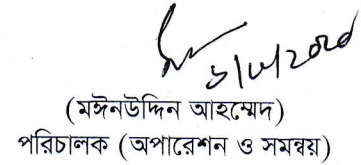 (মঈনউদ্দিন আহম্মেদ)
পরিচালক (অপারেশন ও সমন্বয়)